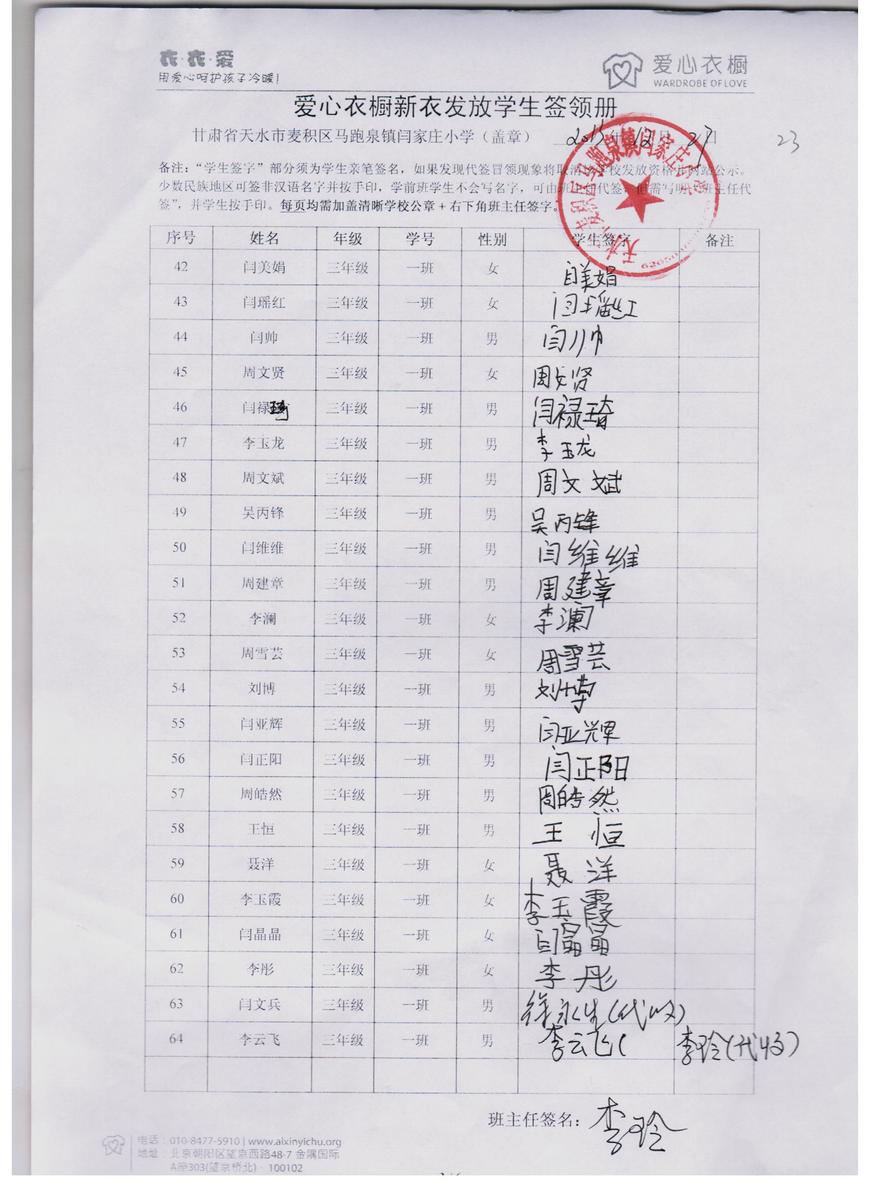 衣·衣·爱
用爱心呵护孩子冷暖!
爱心衣橱
WARDROBE OF LOVE
爱心衣橱新衣发放学生签领册
甘肃省天水市麦积区马跑泉镇闫家庄小学（盖章） 2015年12月27日 23
备注：“学生签字”部分须为学生亲笔签名，如果发现代签冒领现象将取消该学校发放资格并网站公示。
少数民族地区可签非汉语名字并按手印，学前班学生不会写名字，可由班主任代签，但需写明“班主任代
签”，并学生按手印。每页均需加盖清晰学校公章+右下角班主任签字。
序号 姓名 年级 学号 性别 学生签字 备注
42 闫美娟 三年级 一班 女 闫美娟
43 闫瑶红 三年级 一班 女 闫瑶红
44 闫帅 三年级 一班 男 闫帅
45 周文贤 三年级 一班 女 周文贤
46 闫禄琦 三年级 一班 男 闫禄琦
47 李玉龙 三年级 一班 男 李玉龙
48 周文斌 三年级 一班 男 周文斌
49 吴丙锋 三年级 一班 男 吴丙锋
50 闫维维 三年级 一班 男 闫维维
51 周建章 三年级 一班 男 周建章
52 李澜 三年级 一班 女 李澜
53 周雪芸 三年级 一班 女 周雪芸
54 刘博 三年级 一班 男 刘博
55 闫亚辉 三年级 一班 男 闫亚辉
56 闫正阳 三年级 一班 男 闫正阳
57 周皓然 三年级 一班 男 周皓然
58 王恒 三年级 一班 男 王恒
59 聂洋 三年级 一班 女 聂洋
60 李玉霞 三年级 一班 女 李玉霞
61 闫晶晶 三年级 一班 女 闫晶晶
62 李彤 三年级 一班 女 李彤
63 闫文兵 三年级 一班 男 徐永生(代收)
64 李云飞 三年级 一班 男 李云飞( 李玲(代收)
班主任签名： 李玲
电话：010-8477-5910 | www.aixinyichu.org
地址：北京朝阳区望京西路48-7 金隅国际
A座303(望京桥北)·100102